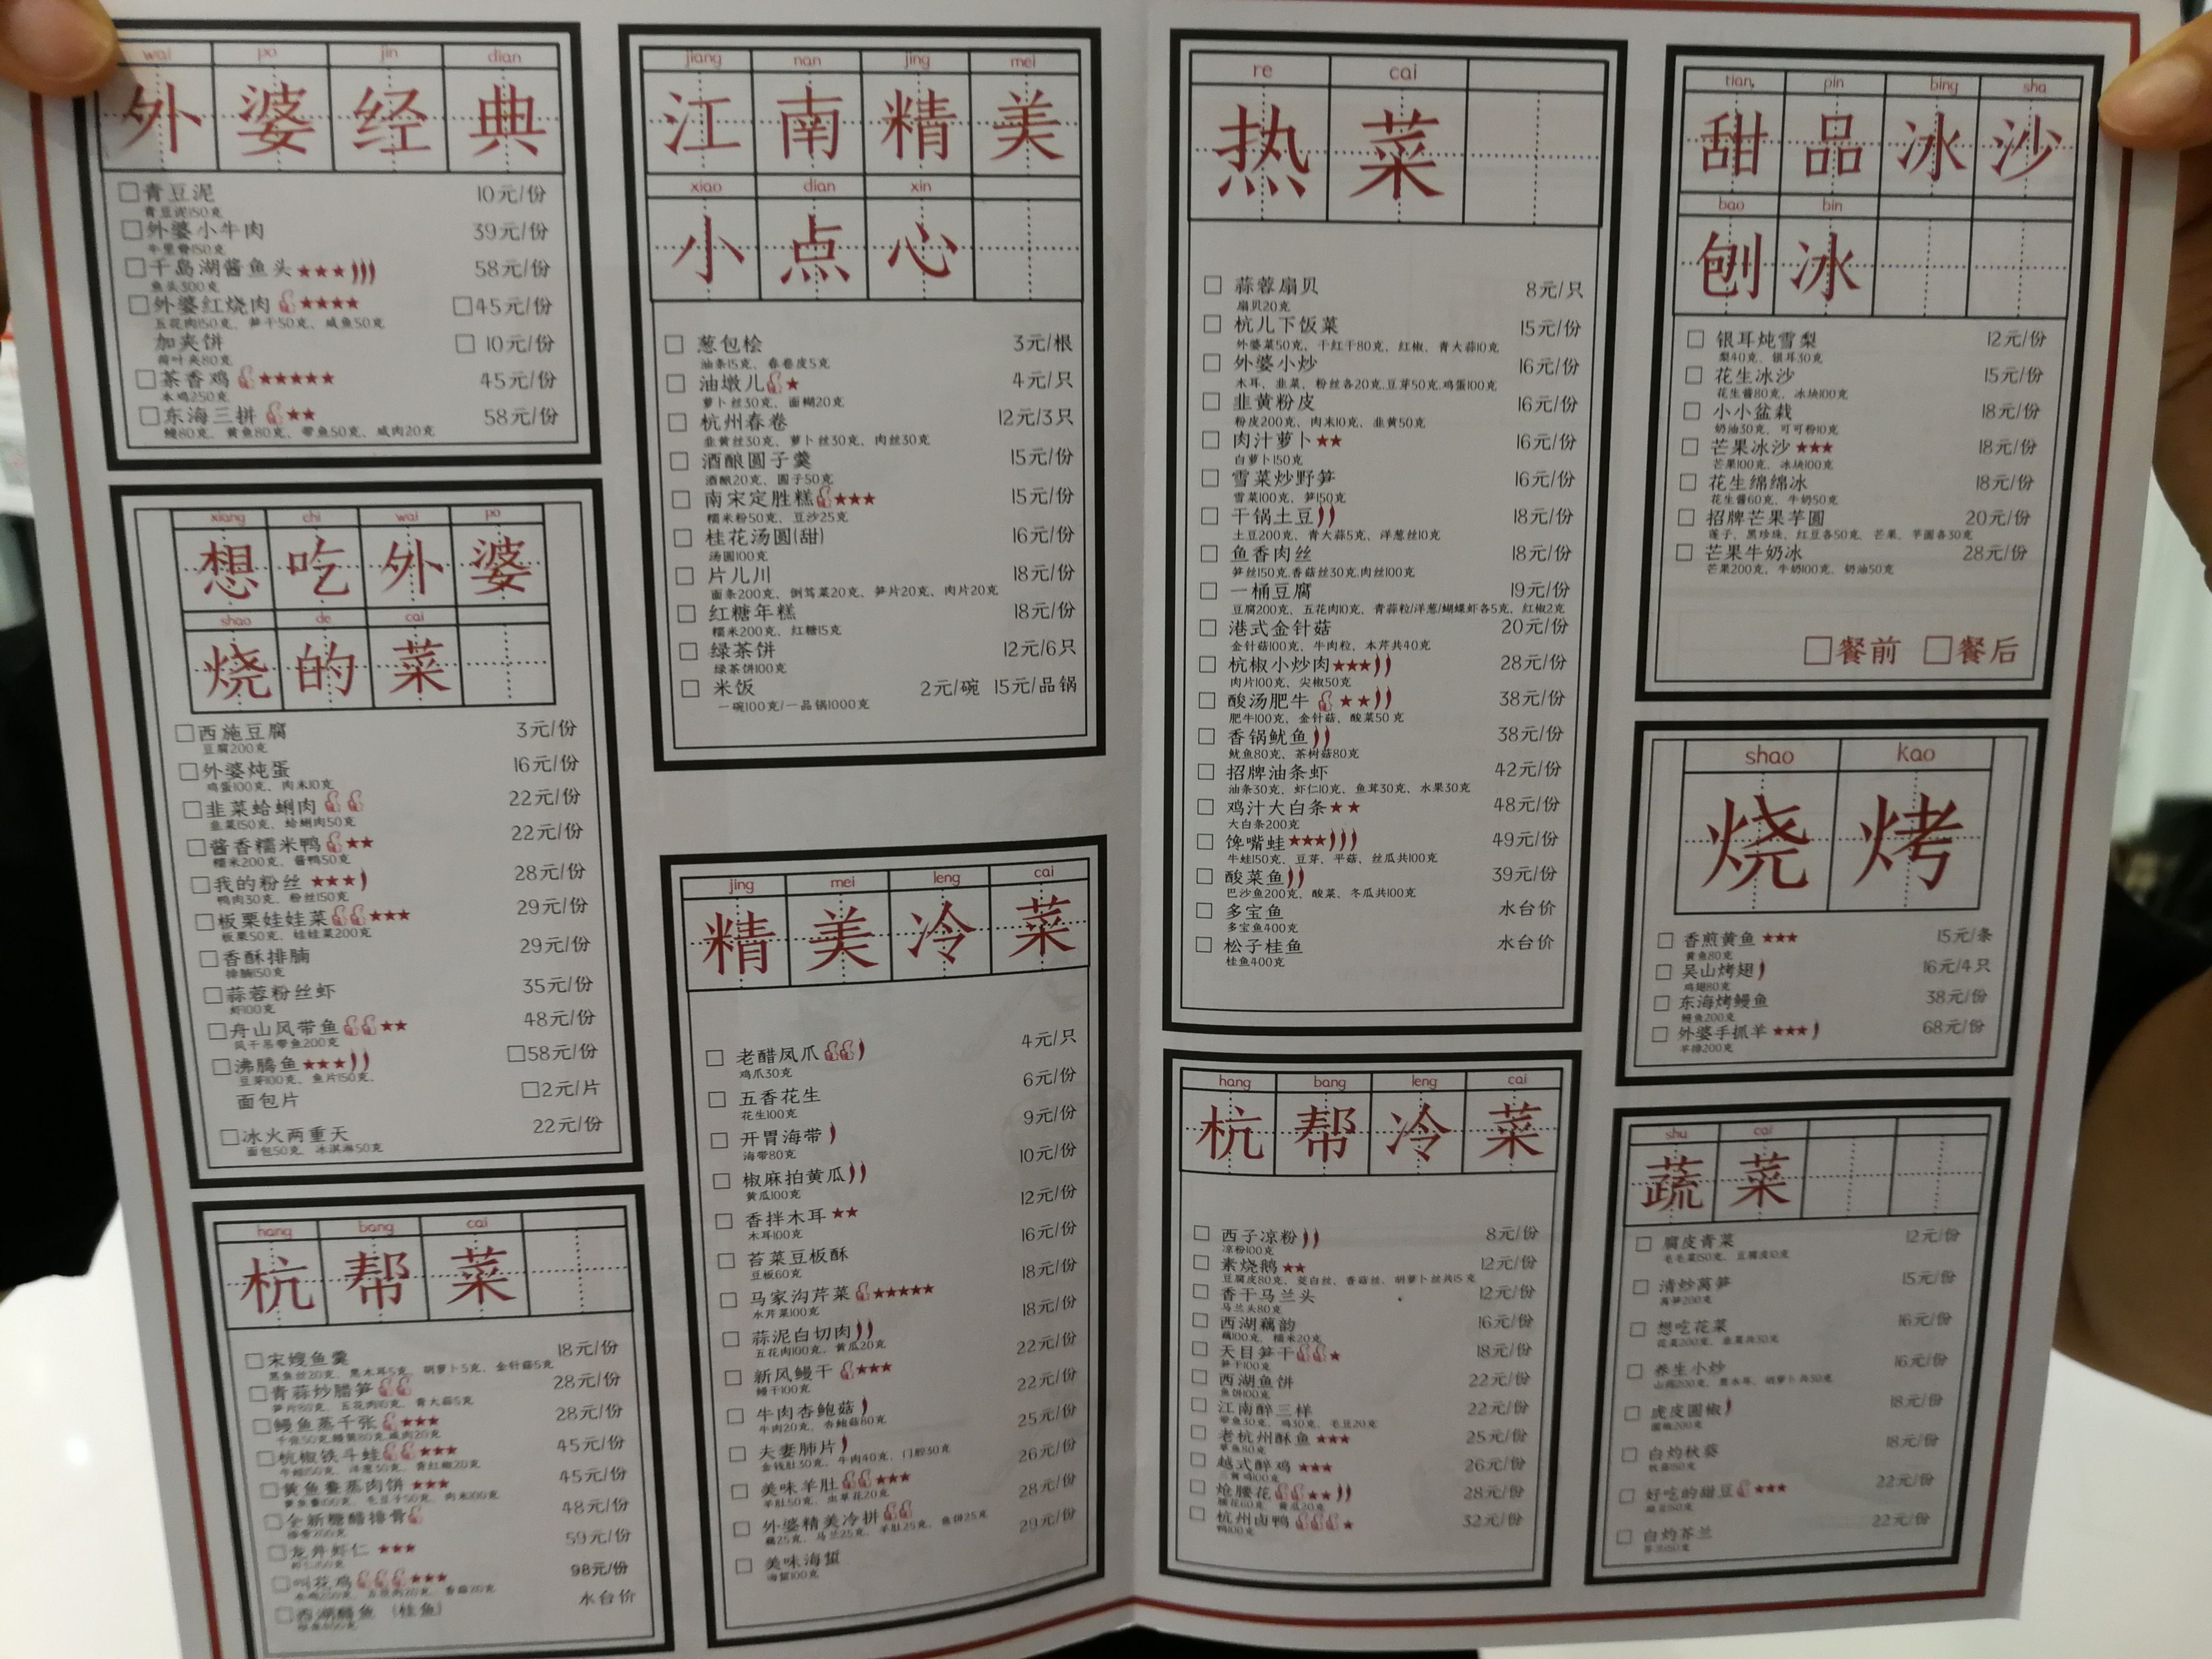 wai po jin dian
外婆经典
青豆泥 10元/份
青豆泥150克
外婆小牛肉 39元/份
牛里脊150克
千岛湖酱鱼头★★★ 58元/份
鱼头300克
外婆红烧肉★★★★ 45元/份
五花肉150克、笋干50克、咸鱼50克
加夹饼 10元/份
荷叶夹80克
茶香鸡★★★★★ 45元/份
本鸡250克
东海三拼★★ 58元/份
鳗80克、黄鱼80克、带鱼50克、咸肉20克
xiang chi wai po
想吃外婆
shao de cai
烧的菜
西施豆腐 3元/份
豆腐200克
外婆炖蛋 16元/份
鸡蛋100克、肉末10克
韭菜蛤蜊肉 22元/份
韭菜150克、蛤蜊肉50克
酱香糯米鸭★★ 22元/份
糯米200克、酱鸭50克
我的粉丝★★★ 28元/份
鸭肉30克、粉丝150克
板栗娃娃菜★★★ 29元/份
板栗50克、娃娃菜200克
香酥排腩 29元/份
排腩150克
蒜蓉粉丝虾 35元/份
虾100克
舟山风带鱼★★ 48元/份
风干吊带鱼200克
沸腾鱼★★★ 58元/份
豆芽100克、鱼片150克、
面包片 2元/片
冰火两重天 22元/份
面包50克、冰淇淋50克
hang bang cai
杭帮菜
宋嫂鱼羹 18元/份
黑鱼丝20克、黑木耳5克、胡萝卜5克、金针菇5克
青蒜炒腊笋 28元/份
笋片80克、五花肉10克、青大蒜5克
鳗鱼蒸千张★★★ 28元/份
千张50克,鳗鱼80克,咸肉20克
杭椒铁斗蛙★★★ 45元/份
牛蛙150克、洋葱30克、青红椒20克
黄鱼鲞蒸肉饼★★★ 45元/份
黄鱼鲞100克、毛豆子50克、肉末100克
全新糖醋排骨 48元/份
排骨200克
龙井虾仁★★★ 59元/份
叫花鸡★★★ 98元/份
西湖醋鱼（桂鱼） 水台价
jiang nan jing mei
江南精美
xiao dian xin
小点心
葱包桧 3元/根
油条15克、春卷皮5克
油墩儿★ 4元/只
萝卜丝30克、面糊20克
杭州春卷 12元/3只
韭黄丝30克、萝卜丝30克、肉丝30克
酒酿圆子羹 15元/份
酒酿20克、圆子50克
南宋定胜糕★★★ 15元/份
糯米粉50克、豆沙25克
桂花汤圆(甜) 16元/份
汤圆100克
片儿川 18元/份
面条200克、倒笃菜20克、笋片20克、肉片20克
红糖年糕 18元/份
糯米200克、红糖15克
绿茶饼 12元/6只
绿茶饼100克
米饭 2元/碗 15元/品锅
一碗100克/一品锅1000克
jing mei leng cai
精美冷菜
老醋凤爪 4元/只
鸡爪30克
五香花生 6元/份
花生100克
开胃海带 9元/份
海带80克
椒麻拍黄瓜 10元/份
黄瓜100克
香拌木耳★★ 12元/份
木耳100克
苔菜豆板酥 16元/份
豆板60克
马家沟芹菜★★★★★ 18元/份
水芹菜100克
蒜泥白切肉 18元/份
五花肉100克、黄瓜20克
新风鳗干★★★ 22元/份
鳗干100克
牛肉杏鲍菇 22元/份
牛肉20克、杏鲍菇80克
夫妻肺片 25元/份
金钱肚30克、牛肉40克、门腔30克
美味羊肚★★★ 26元/份
羊肚50克、虫草花20克
外婆精美冷拼 28元/份
藕25克、马兰25克、羊肚25克、鱼饼25克
美味海蜇 29元/份
海蜇100克
re cai
热菜
蒜蓉扇贝 8元/只
扇贝20克
杭儿下饭菜 15元/份
外婆菜50克、干红干80克、红椒、青大蒜10克
外婆小炒 16元/份
木耳、韭菜、粉丝各20克,豆芽50克,鸡蛋100克
韭黄粉皮 16元/份
粉皮200克、肉末10克、韭黄50克
肉汁萝卜★★ 16元/份
白萝卜150克
雪菜炒野笋 16元/份
雪菜100克、笋150克
干锅土豆 18元/份
土豆200克、青大蒜5克、洋葱丝10克
鱼香肉丝 18元/份
笋丝150克,香菇丝30克,肉丝100克
一桶豆腐 19元/份
豆腐200克、五花肉10克、青蒜粒/洋葱/蝴蝶虾各5克、红椒2克
港式金针菇 20元/份
金针菇100克、牛肉粒、本芹共40克
杭椒小炒肉★★★ 28元/份
肉片100克、尖椒50克
酸汤肥牛★★ 38元/份
肥牛100克、金针菇、酸菜50克
香锅鱿鱼 38元/份
鱿鱼80克、茶树菇80克
招牌油条虾 42元/份
油条30克、虾仁10克、鱼茸30克、水果30克
鸡汁大白条★★ 48元/份
大白条200克
馋嘴蛙★★★ 49元/份
牛蛙150克、豆芽、平菇、丝瓜共100克
酸菜鱼 39元/份
巴沙鱼200克、酸菜、冬瓜共100克
多宝鱼 水台价
多宝鱼400克
松子桂鱼 水台价
桂鱼400克
hang bang leng cai
杭帮冷菜
西子凉粉 8元/份
凉粉100克
素烧鹅★★ 12元/份
豆腐皮80克、茭白丝、香菇丝、胡萝卜丝共15克
香干马兰头 12元/份
马兰头80克
西湖藕韵 16元/份
藕100克、糯米20克
天目笋干★ 18元/份
笋干100克
西湖鱼饼 22元/份
鱼饼100克
江南醉三样 22元/份
带鱼30克、鸡30克、毛豆20克
老杭州酥鱼★★★ 25元/份
草鱼80克
越式醉鸡★★★ 26元/份
三黄鸡100克
炝腰花★★ 28元/份
腰花60克、黄瓜20克
杭州卤鸭★ 32元/份
鸭100克
tian pin bing sha
甜品冰沙
bao bin
刨冰
银耳炖雪梨 12元/份
梨40克、银耳30克
花生冰沙 15元/份
花生酱80克、冰块100克
小小盆栽 18元/份
奶油30克、可可粉10克
芒果冰沙★★★ 18元/份
芒果100克、冰块100克
花生绵绵冰 18元/份
花生酱60克、牛奶50克
招牌芒果芋圆 20元/份
莲子、黑珍珠、红豆各50克、芒果、芋圆各30克
芒果牛奶冰 28元/份
芒果200克、牛奶100克、奶油50克
餐前 餐后
shao kao
烧烤
香煎黄鱼★★★ 15元/条
黄鱼80克
吴山烤翅 16元/4只
鸡翅80克
东海烤鳗鱼 38元/份
鳗鱼200克
外婆手抓羊★★★ 68元/份
羊排200克
shu cai
蔬菜
腐皮青菜 12元/份
毛毛菜150克、豆腐皮10克
清炒莴笋 15元/份
莴笋200克
想吃花菜 16元/份
花菜200克、韭菜共30克
养生小炒 16元/份
山药200克、黑木耳、胡萝卜共50克
虎皮圆椒 18元/份
圆椒200克
白灼秋葵 18元/份
秋葵150克
好吃的甜豆★★★ 22元/份
甜豆150克
白灼芥兰 22元/份
芥兰150克